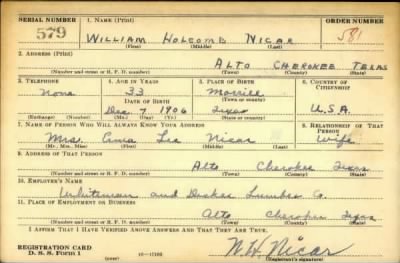 SERIAL NUMBER 1. NAME (Print) ORDER NUMBER
579 WILLIAM HOLCOMB NICAR 581
(First) (Middle) (Last)
2. ADDRESS (Print)
ALTO CHEROKEE TEXAS
(Number and street or R. F. D. number) (Town) (County) (State)
3. TELEPHONE 4. AGE IN YEARS 5. PLACE OF BIRTH 6. COUNTRY OF CITIZENSHIP
None 33 Morrill
DATE OF BIRTH (Town or county)
Dec. 7 1906 Texas U.S.A.
(Exchange) (Number) (Mo.) (Day) (Yr.) (State or country)
7. NAME OF PERSON WHO WILL ALWAYS KNOW YOUR ADDRESS 8. RELATIONSHIP OF THAT PERSON
Mrs. Lee Nicar Wife
(Mr., Mrs., Miss) (First) (Middle) (Last)
9. ADDRESS OF THAT PERSON
Alto Cherokee Texas
(Number and street or R. F. D. number) (Town) (County) (State)
10. EMPLOYER'S NAME
and Lumber Co.
11. PLACE OF EMPLOYMENT OR BUSINESS
Alto Cherokee Texas
(Number and street or R. F. D. number) (Town) (County) (State)
I AFFIRM THAT I HAVE VERIFIED ABOVE ANSWERS AND THAT THEY ARE TRUE.
REGISTRATION CARD W. H. Nicar
D. S. S. Form 1 (over) (Registrant's signature)